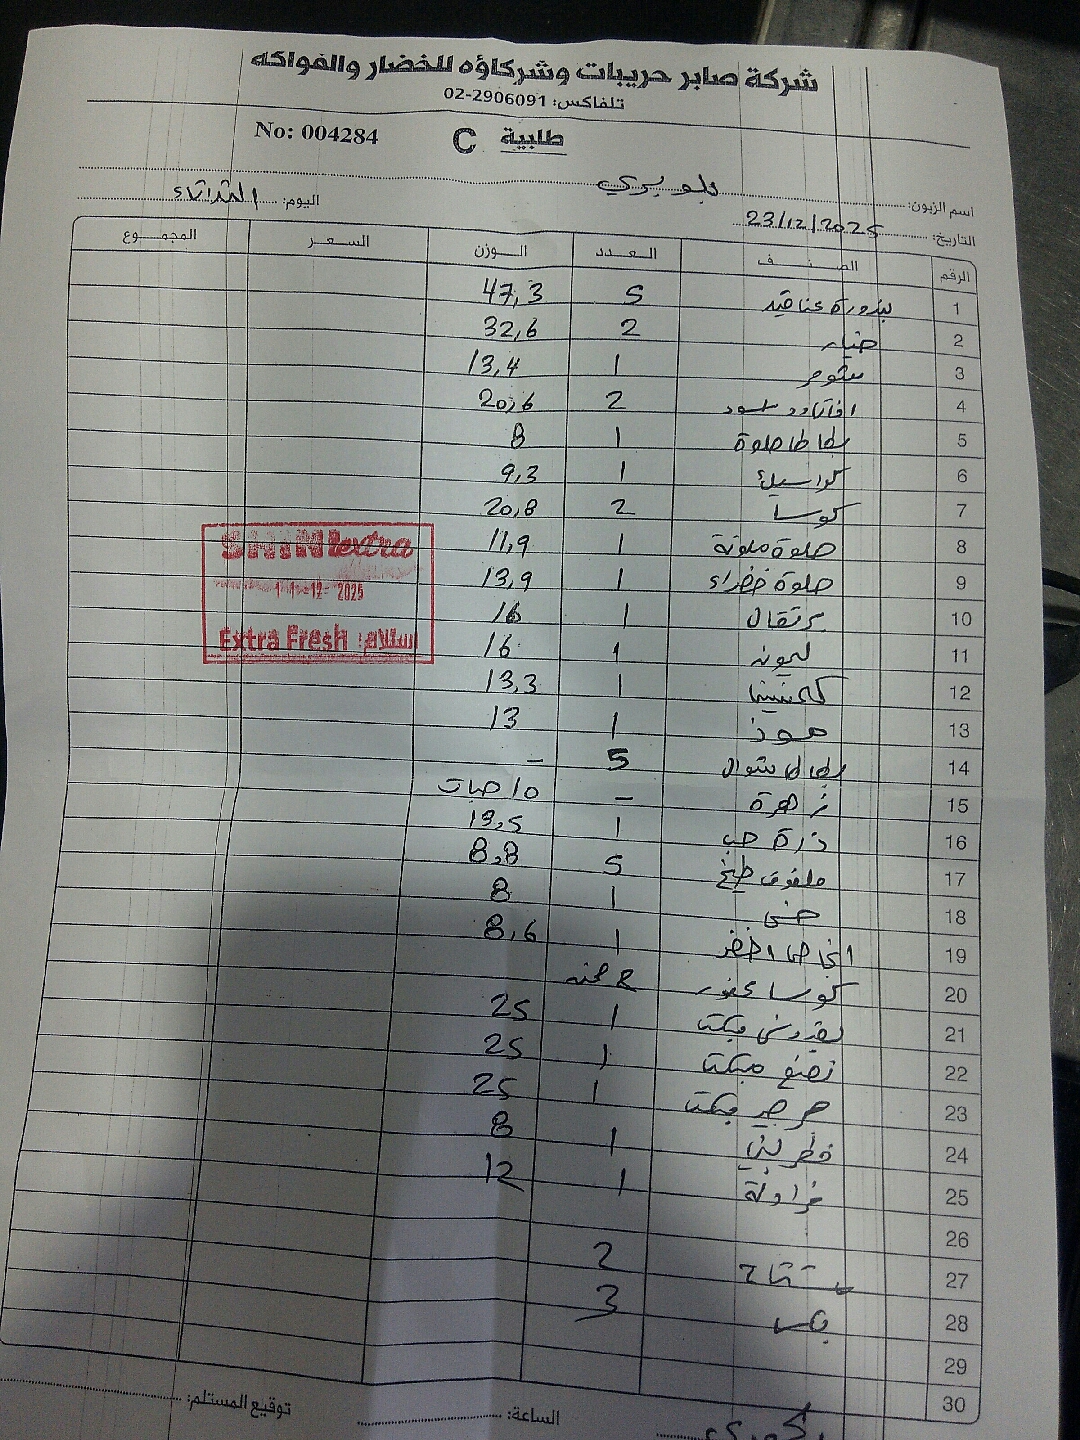 شركة صابر حريبات وشركاؤه للخضار والفواكه
تلفاكس: 02-2906091
No: 004284 C طلبية
اسم الزبون: بلو بيري
التاريخ: 23/12/2025 اليوم: الثلاثاء
الرقم الصنف العدد الوزن السعر المجموع
1 بندورة عناقيد 5 47,3
2 خيار 2 32,6
3 ثوم 1 13,4
4 2 20,6
5 بطاطا حلوة 1 8
6 1 9,3
7 كوسا 2 20,8
8 حلوة ملونة 1 11,9
9 حلوة خضراء 1 13,9
10 برتقال 1 16
11 ليمون 1 16
12 كلمنتينا 1 13,3
13 موز 1 13
14 بطاطا شوال 5 -
15 زهرة - 10 حبات
16 ذرة حب 1 13,5
17 ملفوف طبخ 5 8,8
18 خس 1 8
19 اجاص اخضر 1 8,6
20 كوسا
21 بقدونس مبكت 1 25
22 نعنع مبكت 1 25
23 جرجير مبكت 1 25
24 فطر بني 1 8
25 فراولة 1 12
26
27 2
28 3
29
30
الساعة: توقيع المستلم:
SHINextra
11-12-2025
Extra Fresh